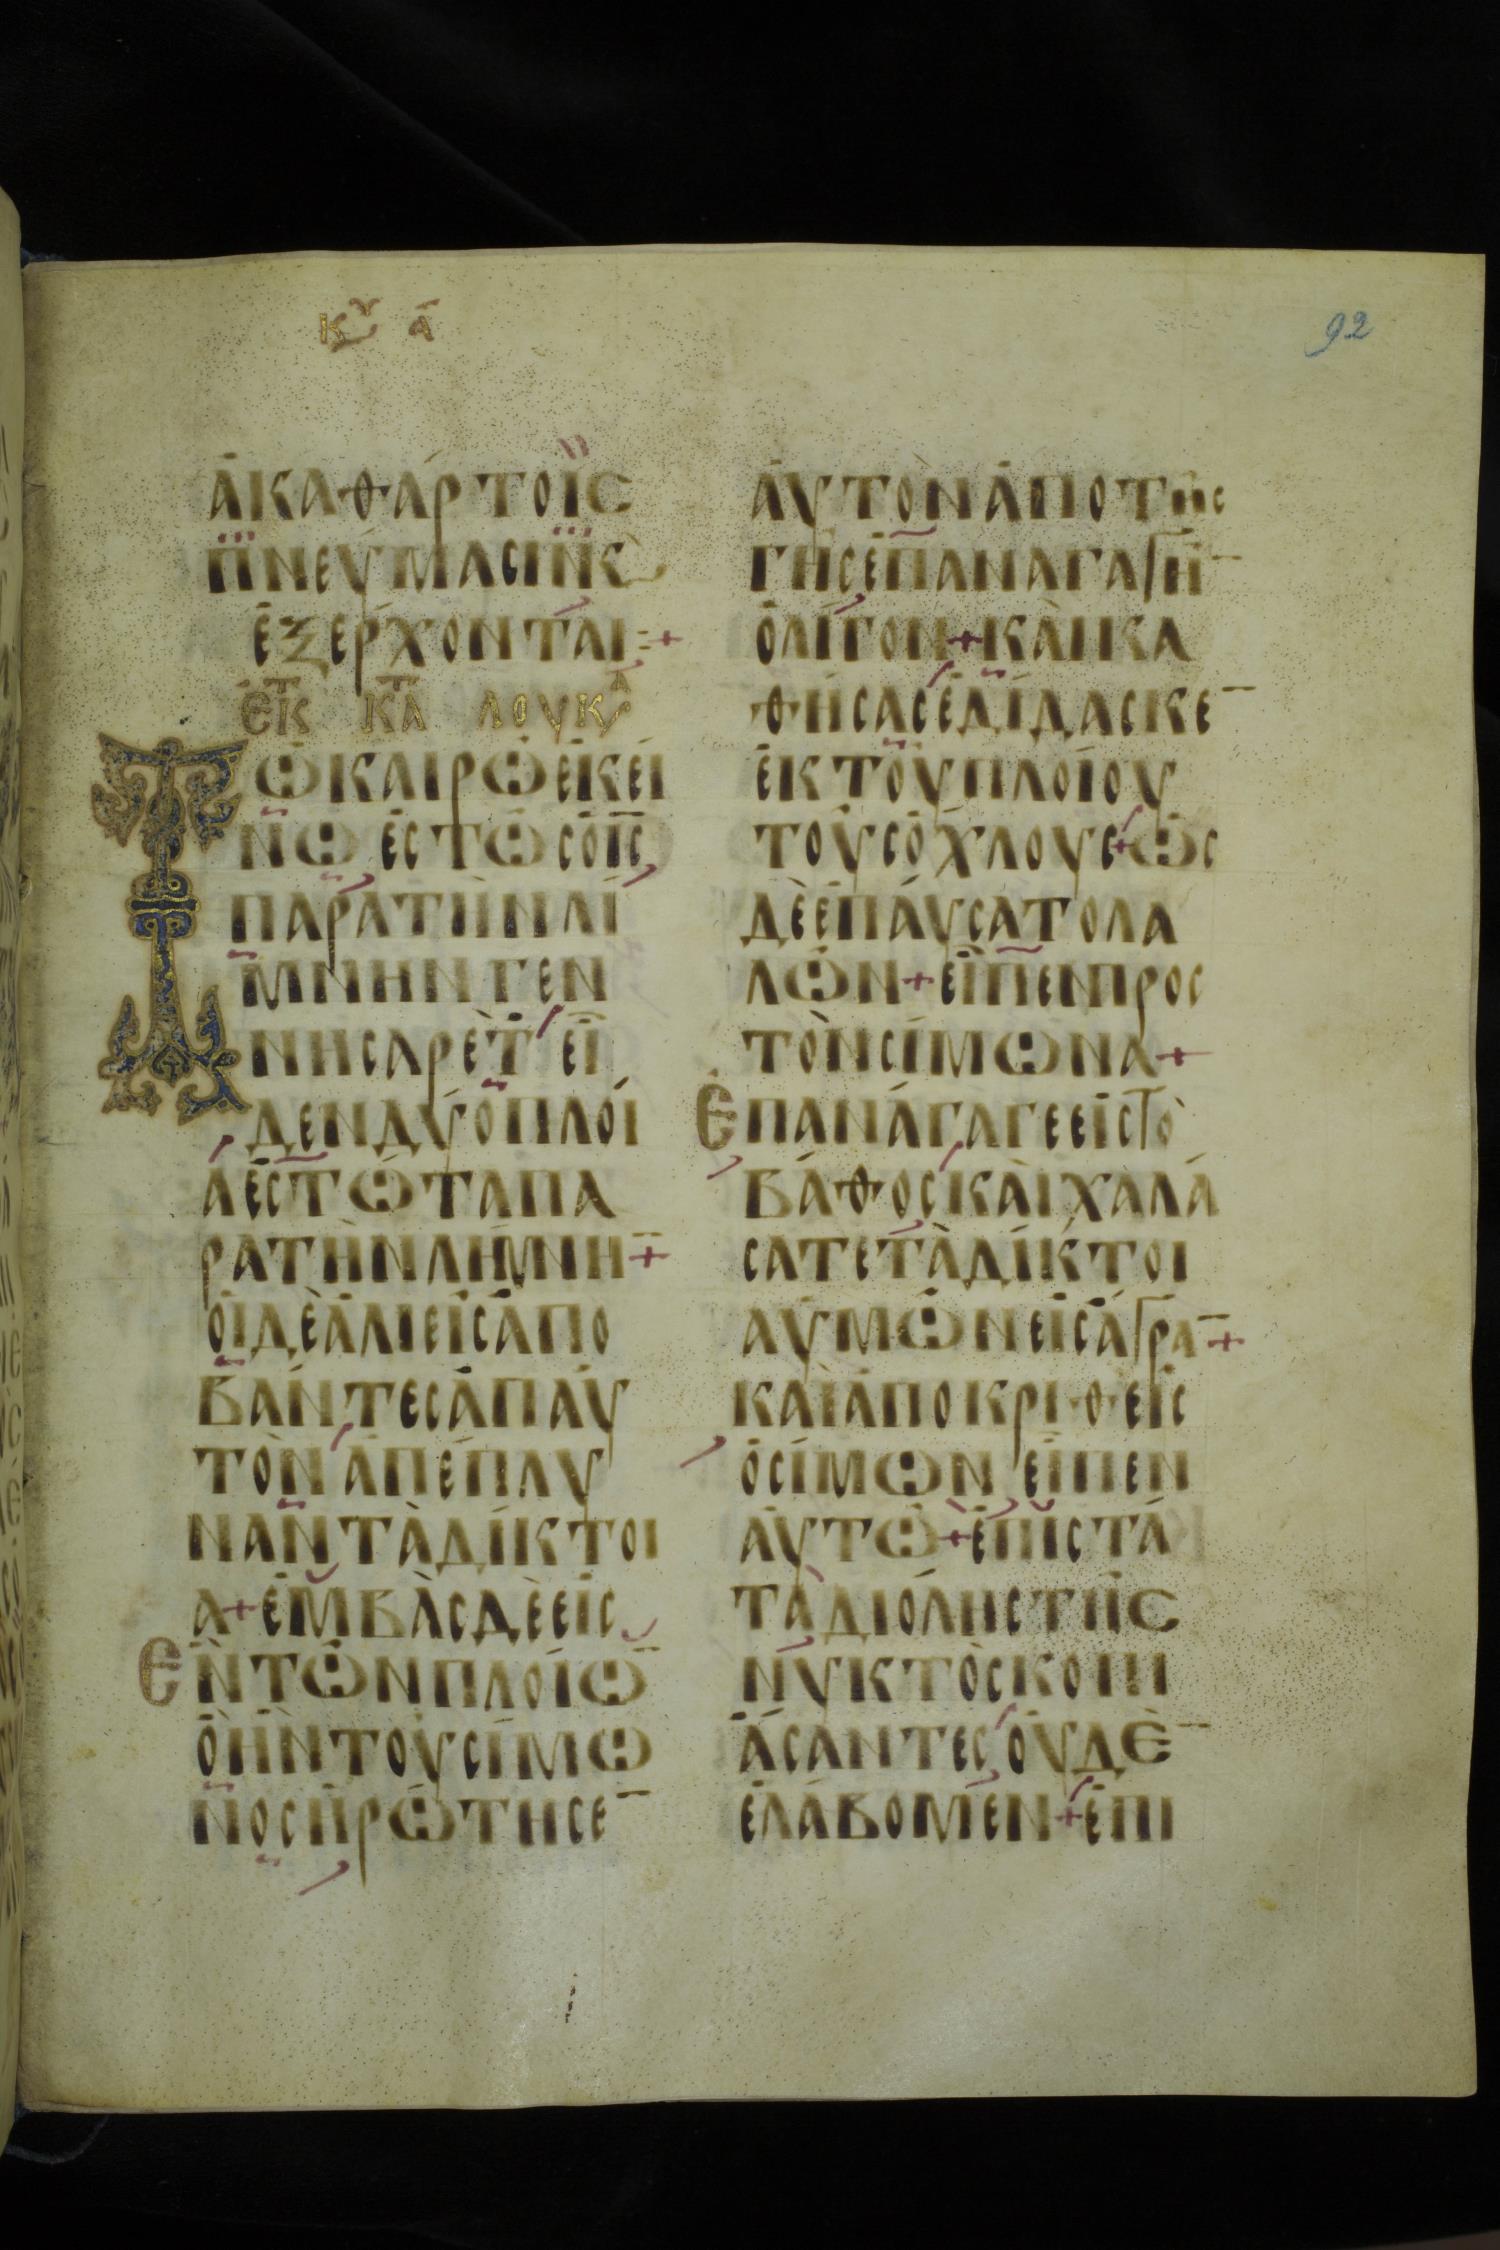 Κυ Α
92
ἀκαθάρτοις
πνεύμασιν κ
ἐξέρχονται:+
Ἐκ κατ Λουκ
Τῶ καιρῶ ἐκεί
νω ἐστὼς ὁ ις
παρὰ τὴν λί
μνην Γεν
νησαρὲτ εἶ
δεν δύο πλοῖ
α ἑστῶτα πα
ρὰ τὴν λήμνη¯+
οἱ δὲ ἁλιεῖς ἀπο
βάντες ἀπ' αὐ
τῶν ἀπέπλυ
ναν τὰ δίκτοι
α+ ἐμβὰς δὲ εἰς
ἓν τῶν πλοίω¯
ὃ ἦν τοῦ Σίμω
νος ἠρώτησε¯
αὐτὸν ἀπὸ τῆς
γῆς ἐπαναγαγῆ¯
ὀλίγον+ καὶ κα
θήσας ἐδίδασκε¯
ἐκ τοῦ πλοίου
τοὺς ὄχλους+ ὡς
δὲ ἐπαύσατο λα
λῶν+ εἶπεν προς
τὸν Σίμωνα+
Ἐπανάγαγε εἰς τὸ
βάθος καὶ χαλά
σατε τὰ δίκτοι
α ὑμῶν εἰς ἄγρα¯+
καὶ ἀποκριθεὶς
ὁ Σίμων εἶπεν
αὐτῶ+ ἐπιστά
τα δι' ὅλης τῆς
νυκτὸς κοπι
άσαντες οὐδὲ¯
ἐλάβομεν+ ἐπι